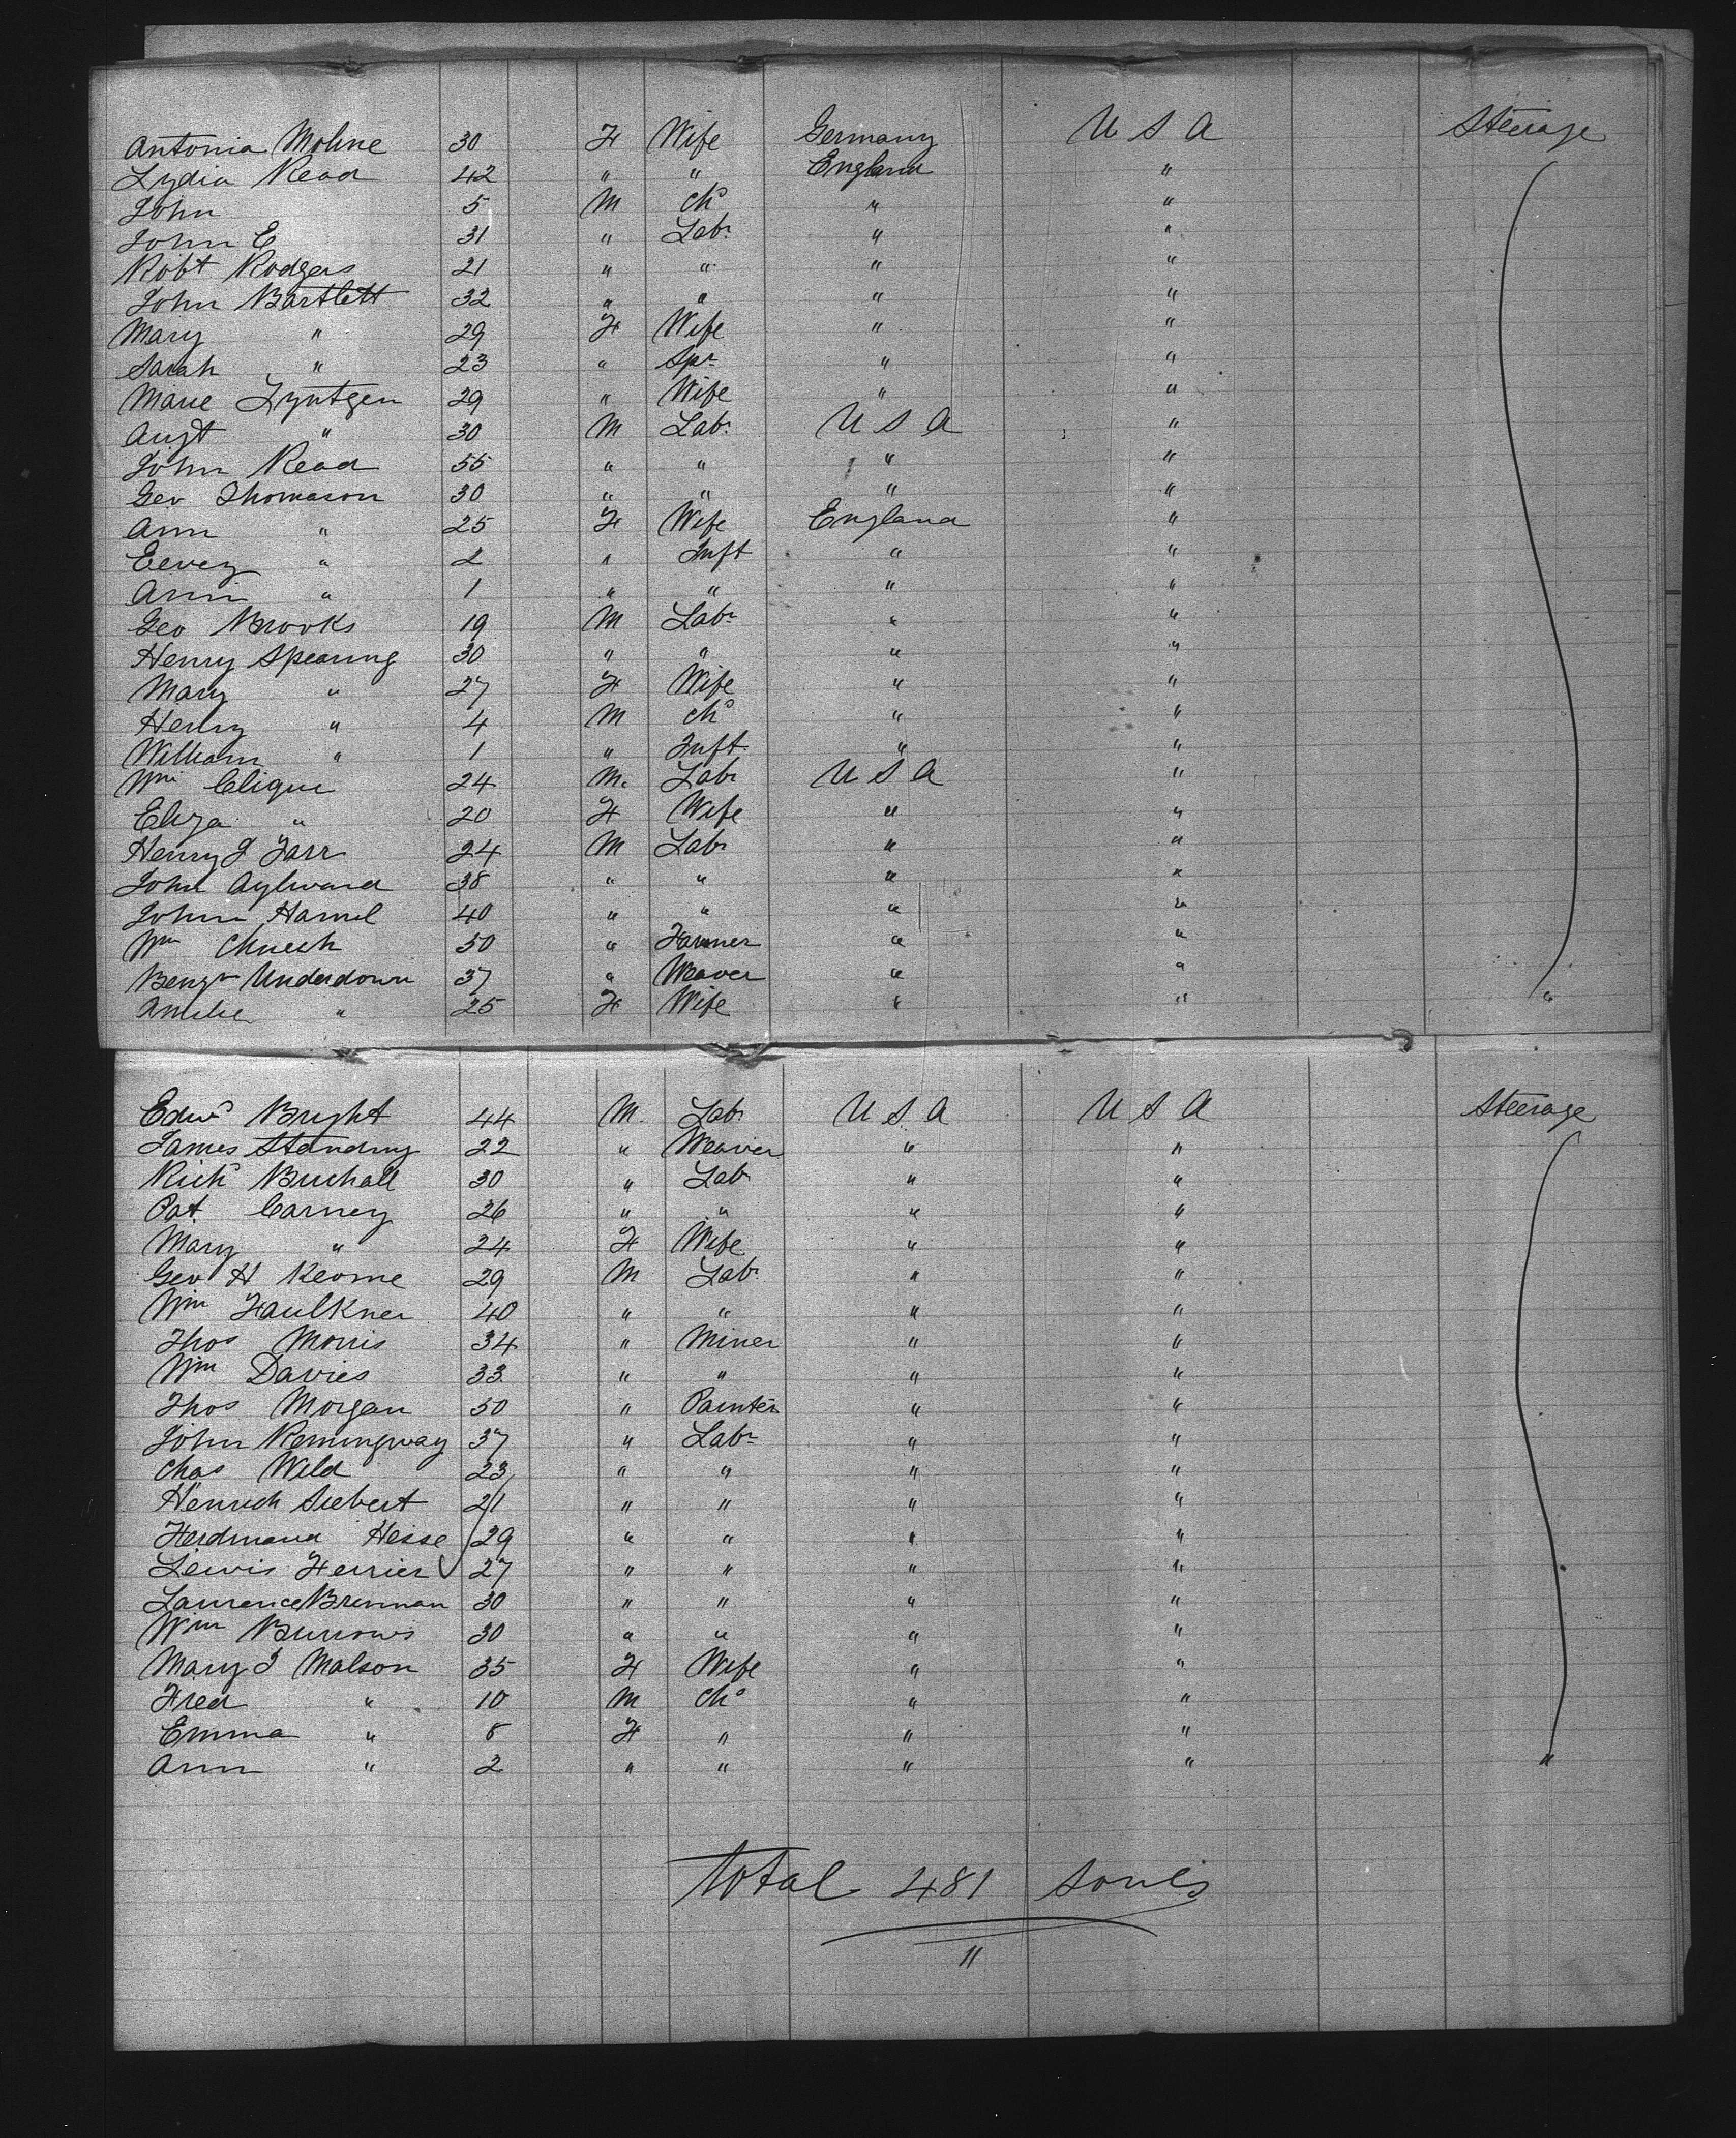 Antonia Moline 30 F Wife Germany U S A Steerage
Lydia Read 42 " " England "
John 5 M Chd " "
John E 31 " Labr " "
Robt Rodgers 21 " " " "
John Bartlett 32 " " " "
Mary " 29 F Wife " "
Sarah " 23 " Spr " "
Marie Lyntgen 29 " Wife " "
Augt " 30 M Labr U S A "
John Read 55 " " " "
Geo Thomason 30 " " " "
Ann " 25 F Wife England "
Eevey " 2 " Inft " "
Ann " 1 " " " "
Geo Brooks 19 M Labr " "
Henry Spearing 30 " " " "
Mary " 27 F Wife " "
Henry " 4 M Chd " "
William " 1 " Inft " "
Wm Clique 24 M. Labr U S A "
Eliza " 20 F Wife " "
Henry J Farr 24 M Labr " "
John Aylward 38 " " " "
John Hamel 40 " " " "
Wm 50 " Farmer " "
Benjn Underdown 37 " Weaver " "
Amelie " 25 F Wife " " "
Edwd Bright 44 M. Labr U S A U S A Steerage
James Standing 22 " Weaver " "
Richd Birchall 30 " Lab " "
Pat Carney 26 " " " "
Mary " 24 F Wife " "
Geo H Keorne 29 M Labr " "
Wm Faulkner 40 " " " "
Thos Morris 34 " Miner " "
Wm Davies 33 " " " "
Thos Morgan 50 " Painter " "
John Remingway 37 " Labr " "
Chas Wild 23 " " " "
Henrich Siebert 21 " " " "
Ferdinand Hesse 29 " " " "
Lewis Ferrier 27 " " " "
Laurence Brennan 30 " " " "
Wm Burrows 30 " " " "
Mary J Malson 35 F Wife " "
Fred " 10 M Chd " "
Emma " 8 F " " "
Ann " 2 " " " " "
Total 481 Souls
"